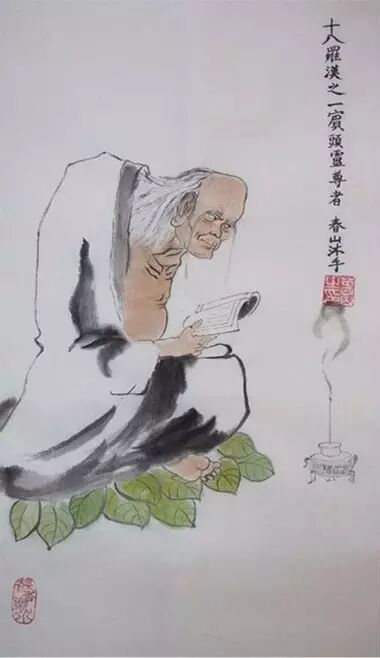 十八羅漢之一賓頭靈尊者 春山沐手